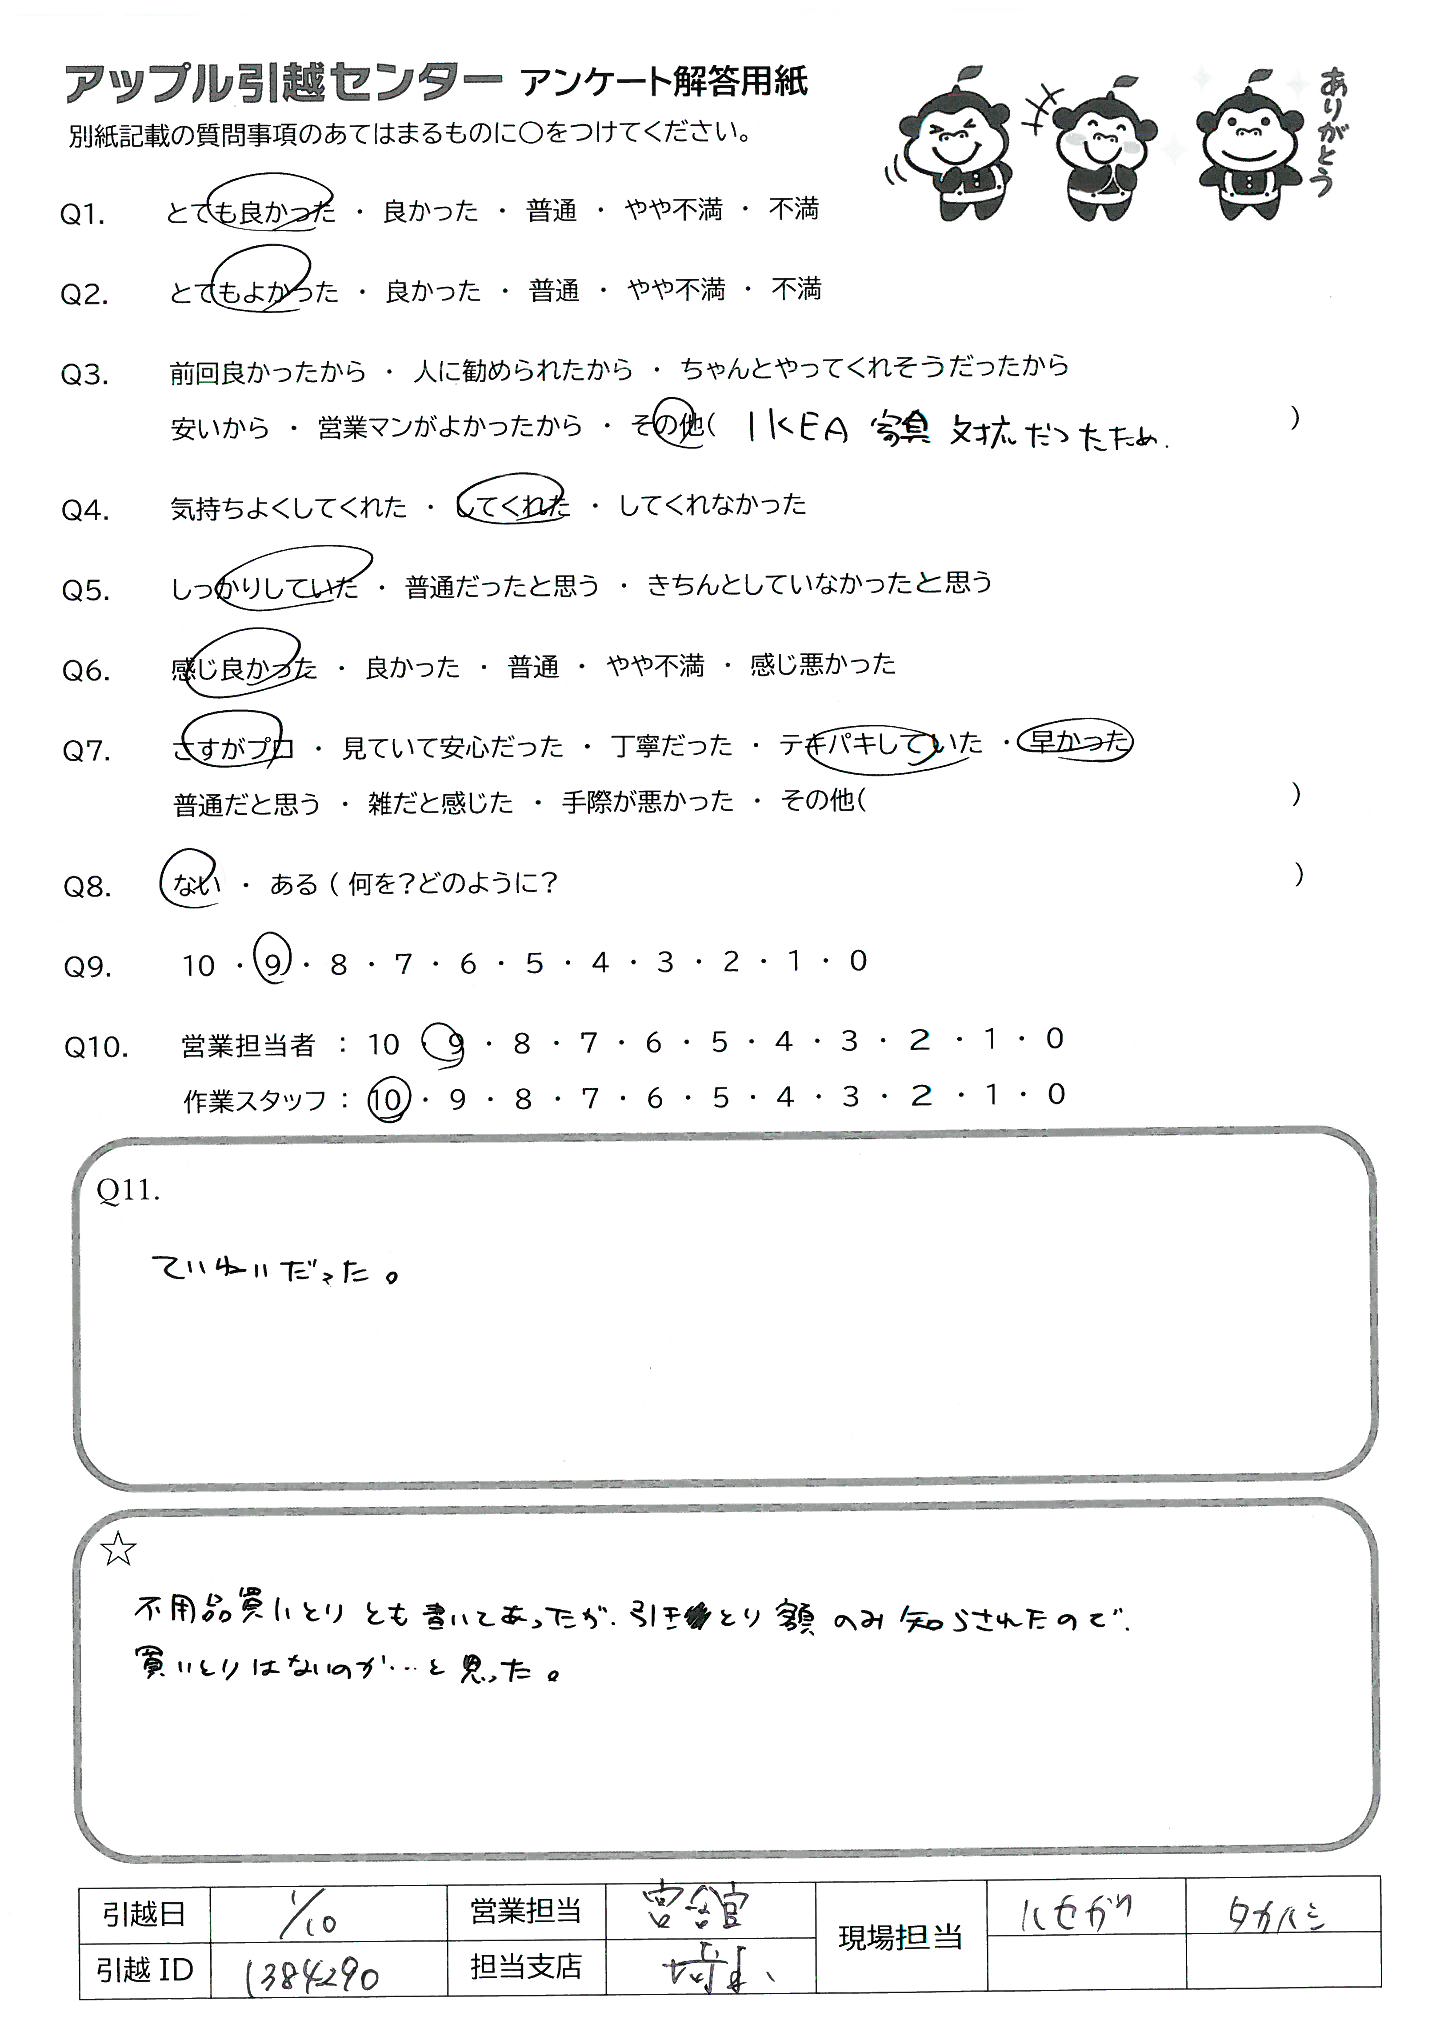 アップル引越センター アンケート解答用紙
ありがとう
別紙記載の質問事項のあてはまるものに○をつけてください。
Q1. とても良かった ・ 良かった ・ 普通 ・ やや不満 ・ 不満
Q2. とてもよかった ・ 良かった ・ 普通 ・ やや不満 ・ 不満
Q3. 前回良かったから ・ 人に勧められたから ・ ちゃんとやってくれそうだったから
安いから ・ 営業マンがよかったから ・ その他( IKEA 家具 対抗だったため. )
Q4. 気持ちよくしてくれた ・ してくれた ・ してくれなかった
Q5. しっかりしていた ・ 普通だったと思う ・ きちんとしていなかったと思う
Q6. 感じ良かった ・ 良かった ・ 普通 ・ やや不満 ・ 感じ悪かった
Q7. さすがプロ ・ 見ていて安心だった ・ 丁寧だった ・ テキパキしていた ・ 早かった
普通だと思う ・ 雑だと感じた ・ 手際が悪かった ・ その他( )
Q8. ない ・ ある ( 何を？どのように？ )
Q9. 10 ・ 9 ・ 8 ・ 7 ・ 6 ・ 5 ・ 4 ・ 3 ・ 2 ・ 1 ・ 0
Q10. 営業担当者 ： 10 ・ 9 ・ 8 ・ 7 ・ 6 ・ 5 ・ 4 ・ 3 ・ 2 ・ 1 ・ 0
作業スタッフ ： 10 ・ 9 ・ 8 ・ 7 ・ 6 ・ 5 ・ 4 ・ 3 ・ 2 ・ 1 ・ 0
Q11.
ていねいだった。
☆
不用品買いとりとも書いてあったが、引きとり額のみ知らされたので、
買いとりはないのか…と思った。
引越日 1/10 営業担当 現場担当 ハセガワ タカハシ
引越ID 1384290 担当支店